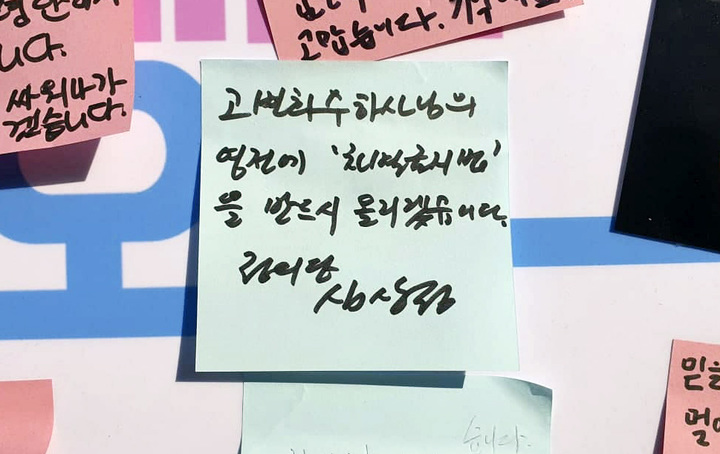 니다.
싸워나가
겠습니다.
고맙습니다.
고 변희수 하사님의
영전에 '차별금지법'
을 반드시 올리겠습니다.
정의당
심상정
습니다.
믿을